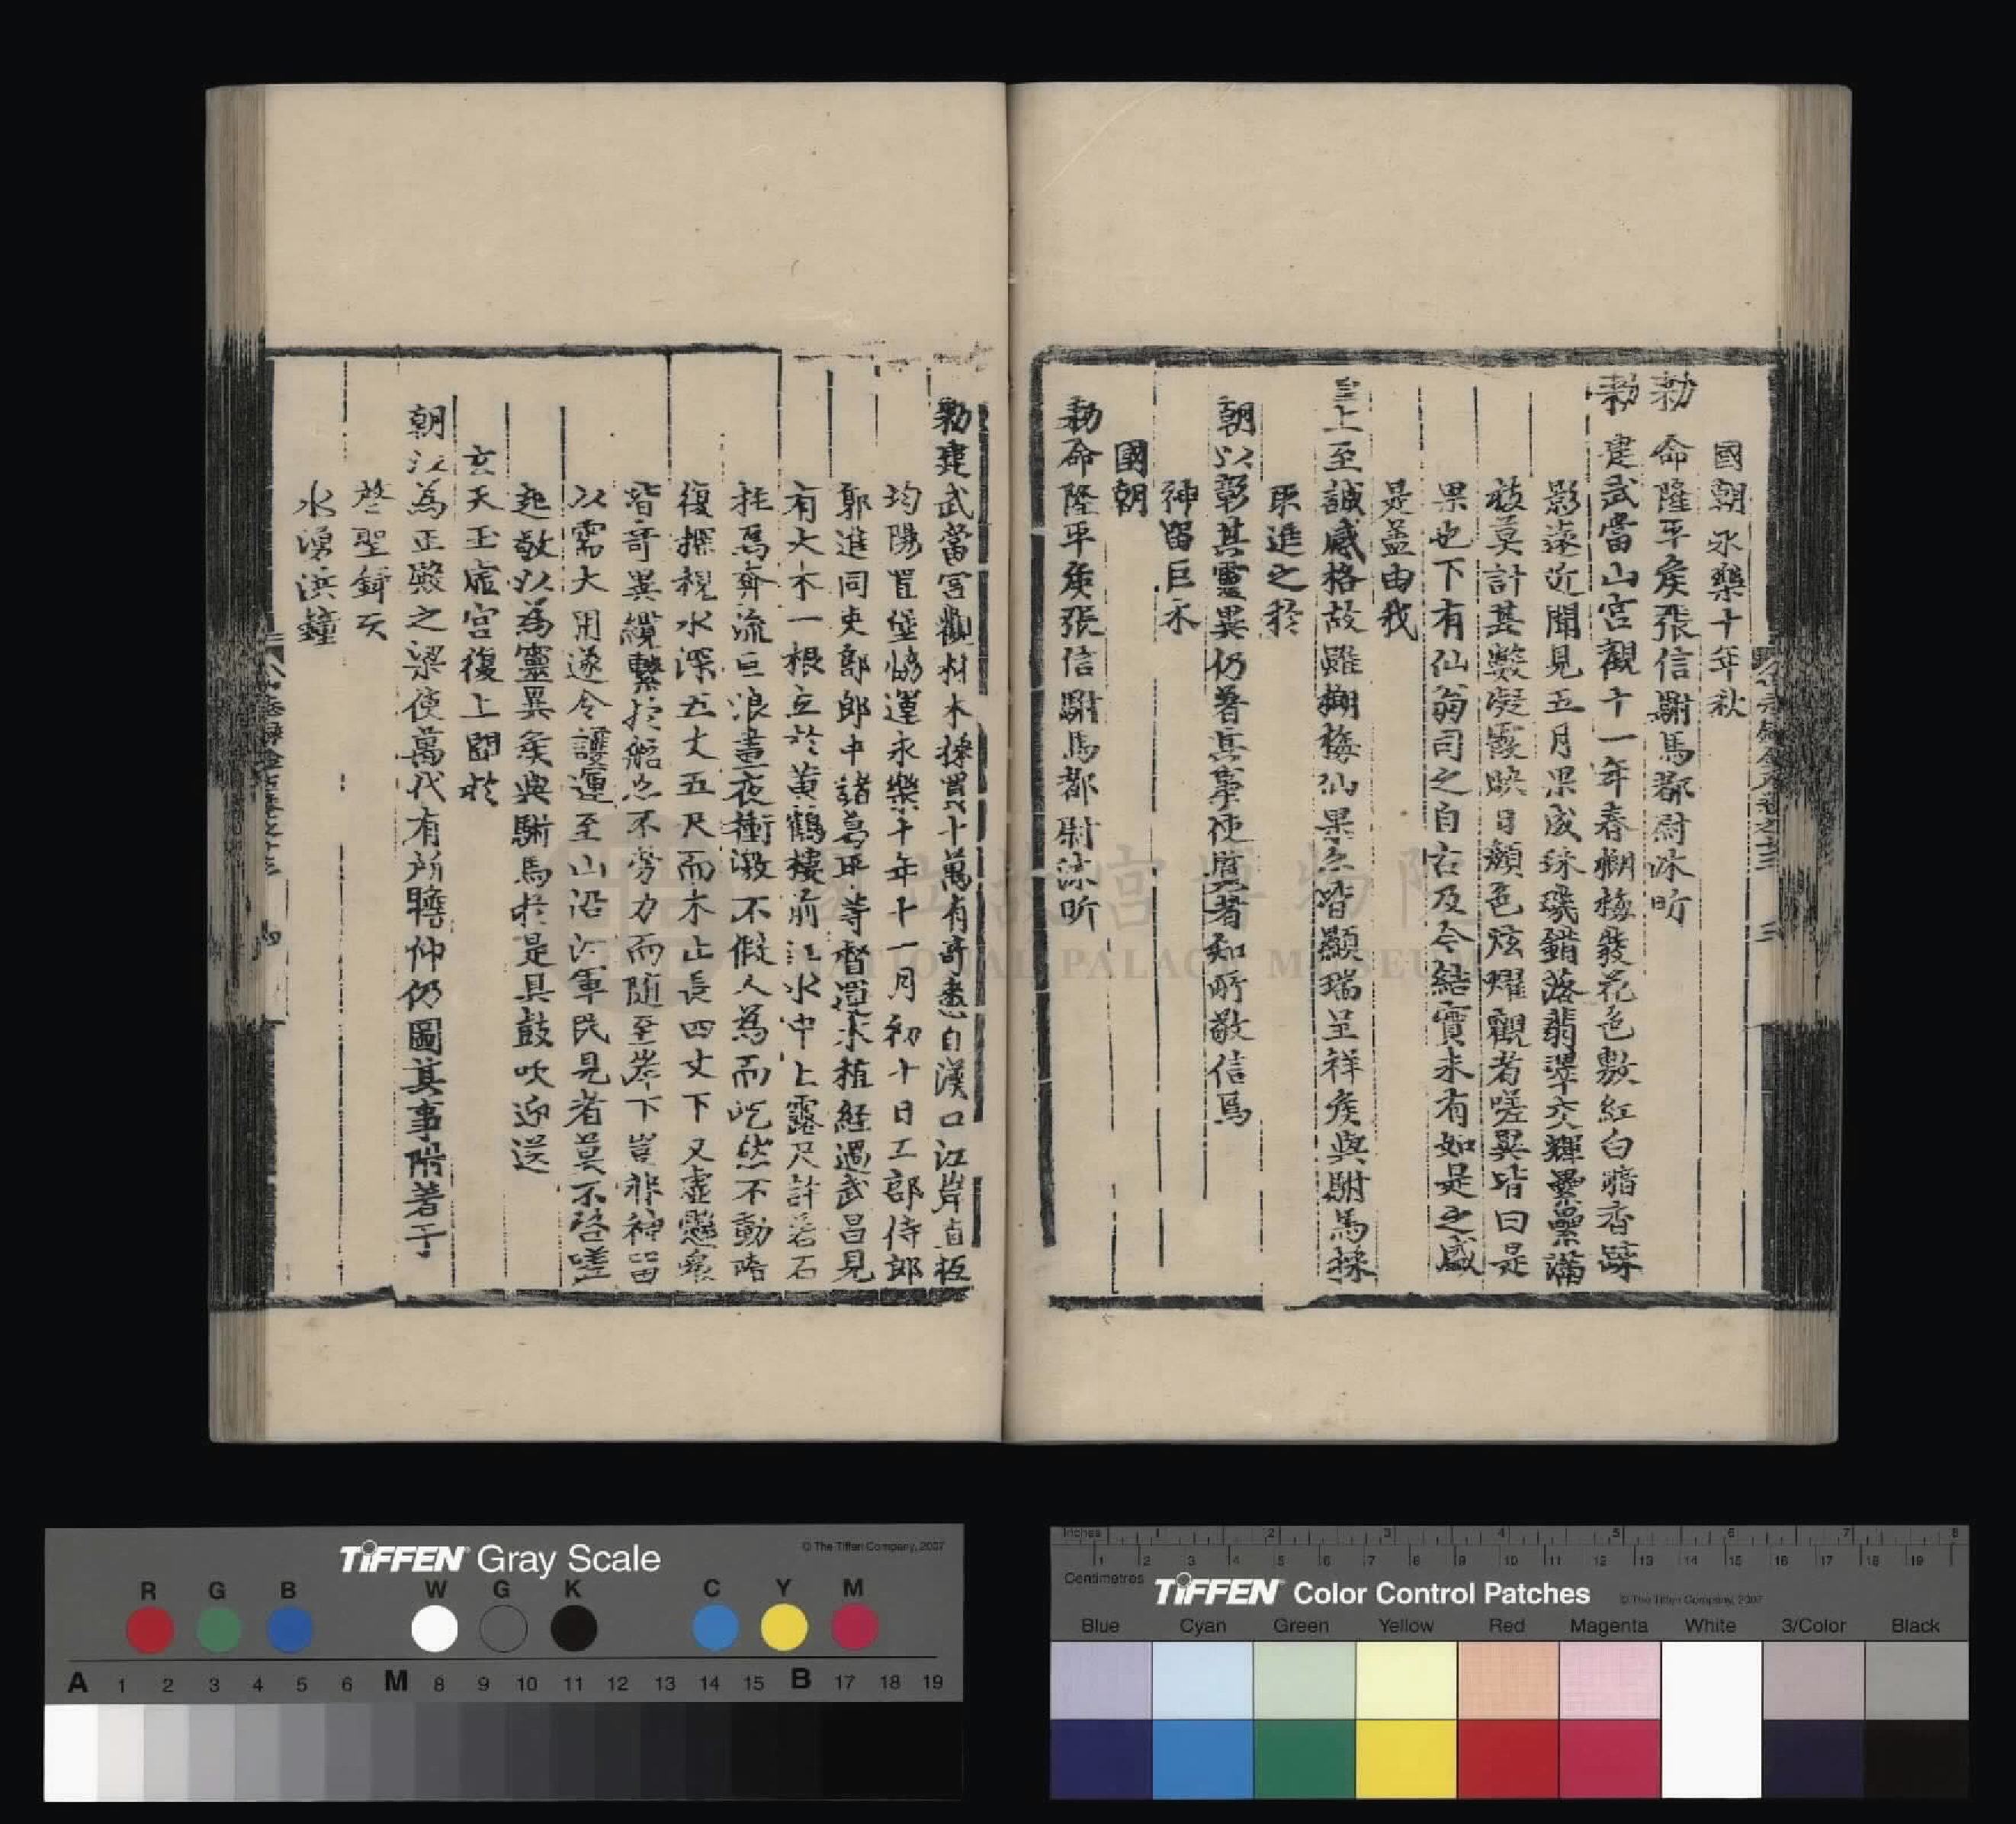 國朝永樂十年秋
勑命隆平侯張信駙馬都尉沐昕
勑建武當山宮觀十一年春榔梅發花色敷紅白暗香踈
影遠近聞見五月果成珠璣錯落翡翠交輝壘纍滿
枝莫計其數凝霞映日顏色炫耀觀者嗟異皆曰是
果也下有仙翁司之自古及今結實未有如是之盛
是盖由我
皇上至誠感格故雖榔梅仙果亦皆顯瑞呈祥侯與駙馬採
取進之於
朝以彰其靈異仍著其事使覽者知所敬信焉
神留巨木
國朝
勑命隆平侯張信駙馬都尉沐昕
勑建武當宮觀材木採買十萬有竒悉自漢口江岸直抵
均陽置堡協運永樂十年十一月初十日工部侍郎
郭進同吏部郎中諸葛平等督運木植經過武昌見
有大木一根立於黃鶴樓前江水中上露尺許若石
柱焉奔流巨浪晝夜衝激不假人為而屹然不動咯
復探視水深五丈五尺而木止長四丈下又虛懸衆
皆竒異纜繫於艦亦不勞力而隨至岸下豈非神留
以需大用遂令護運至山沿江軍民見者莫不咨嗟
起敬以為靈異侯與駙馬於是具鼓吹迎送
玄天玉虛宮復上聞於
朝以為正殿之梁使萬代有所瞻仰仍圖其事附著于
水湧洪鐘
TIFFEN Gray Scale
© The Tiffen Company, 2007
R G B W G K C Y M
A 1 2 3 4 5 6 M 8 9 10 11 12 13 14 15 B 17 18 19
Inches 1 2 3 4 5 6 7 8
1 2 3 4 5 6 7 8 9 10 11 12 13 14 15 16 17 18 19
Centimetres
TIFFEN Color Control Patches
© The Tiffen Company, 2007
Blue Cyan Green Yellow Red Magenta White 3/Color Black
國立故宮博物院
NATIONAL PALACE MUSEUM